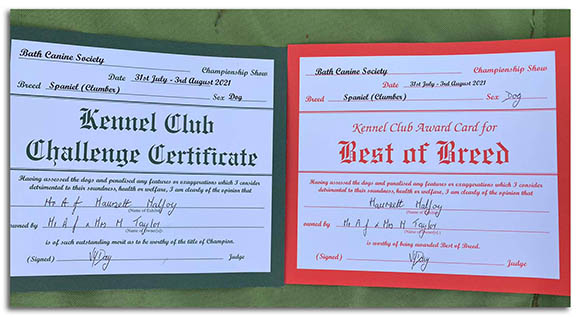 Bath Canine Society
Championship Show
Date 31st July - 3rd August 2021
Breed Spaniel (Clumber) Sex Dog
Kennel Club
Challenge Certificate
Having assessed the dogs and penalised any features or exaggerations which I consider
detrimental to their soundness, health or welfare, I am clearly of the opinion that
Mr A J Maursett Malfoy
(Name of Exhibit)
owned by Mr A J & Mrs M Taylor
(Name of Owner(s))
is of such outstanding merit as to be worthy of the title of Champion.
(Signed) Judge
Bath Canine Society
Championship Show
Date 31st July - 3rd August 2021
Breed Spaniel (Clumber) Sex Dog
Kennel Club Award Card for
Best of Breed
Having assessed the dogs and penalised any features or exaggerations which I consider
detrimental to their soundness, health or welfare, I am clearly of the opinion that
Maursett Malfoy
(Name of Exhibit)
owned by Mr A J & Mrs M Taylor
(Name of Owner(s))
is worthy of being awarded Best of Breed.
(Signed) Judge